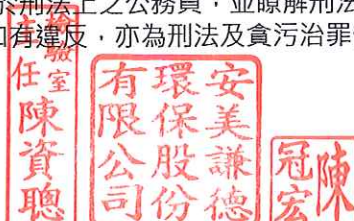 於刑法上之公務員，並瞭解刑法
如有違反，亦為刑法及貪污治罪
檢驗室
主任陳資聰
安美謙德
環保股份
有限公司
陳
冠宏